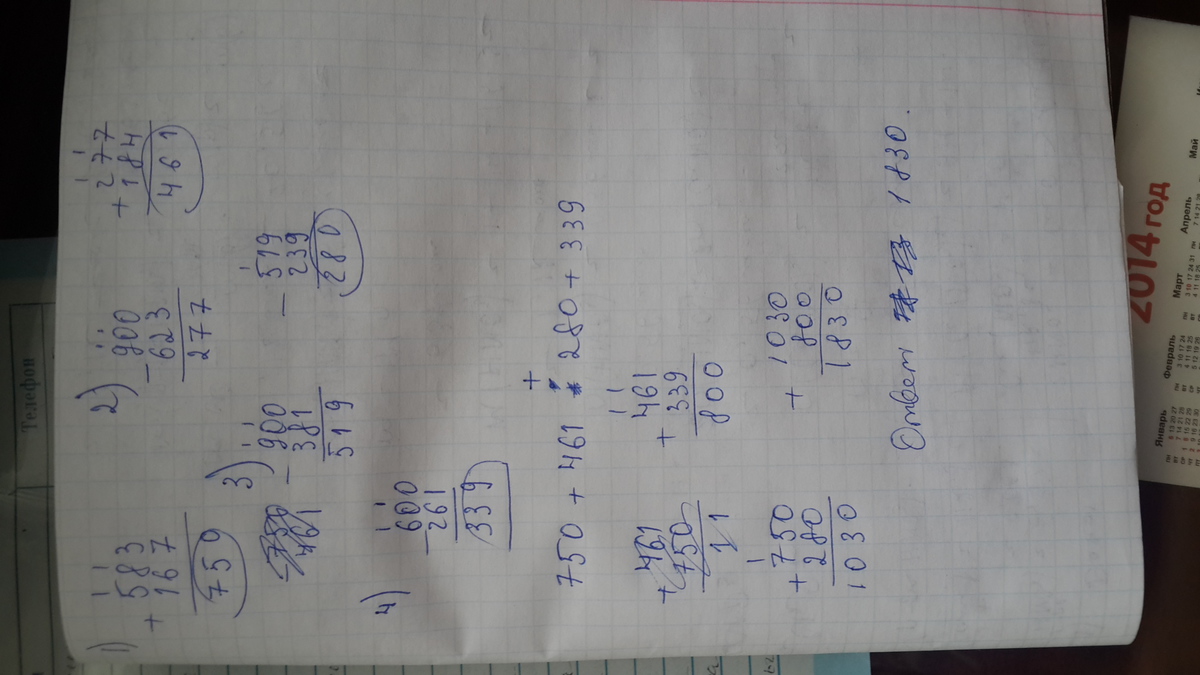 1) + 583
167
750
2) - 900
623
277
+ 277
184
461
3) - 900
381
519
- 519
239
280
4) - 600
261
339
750 + 461 + 280 + 339
+ 461
750
11
+ 461
339
800
+ 750
280
1030
+ 1030
800
1830
Ответ 1830.
Телефон
2014 год
Январь
Февраль
Март
Апрель
Май